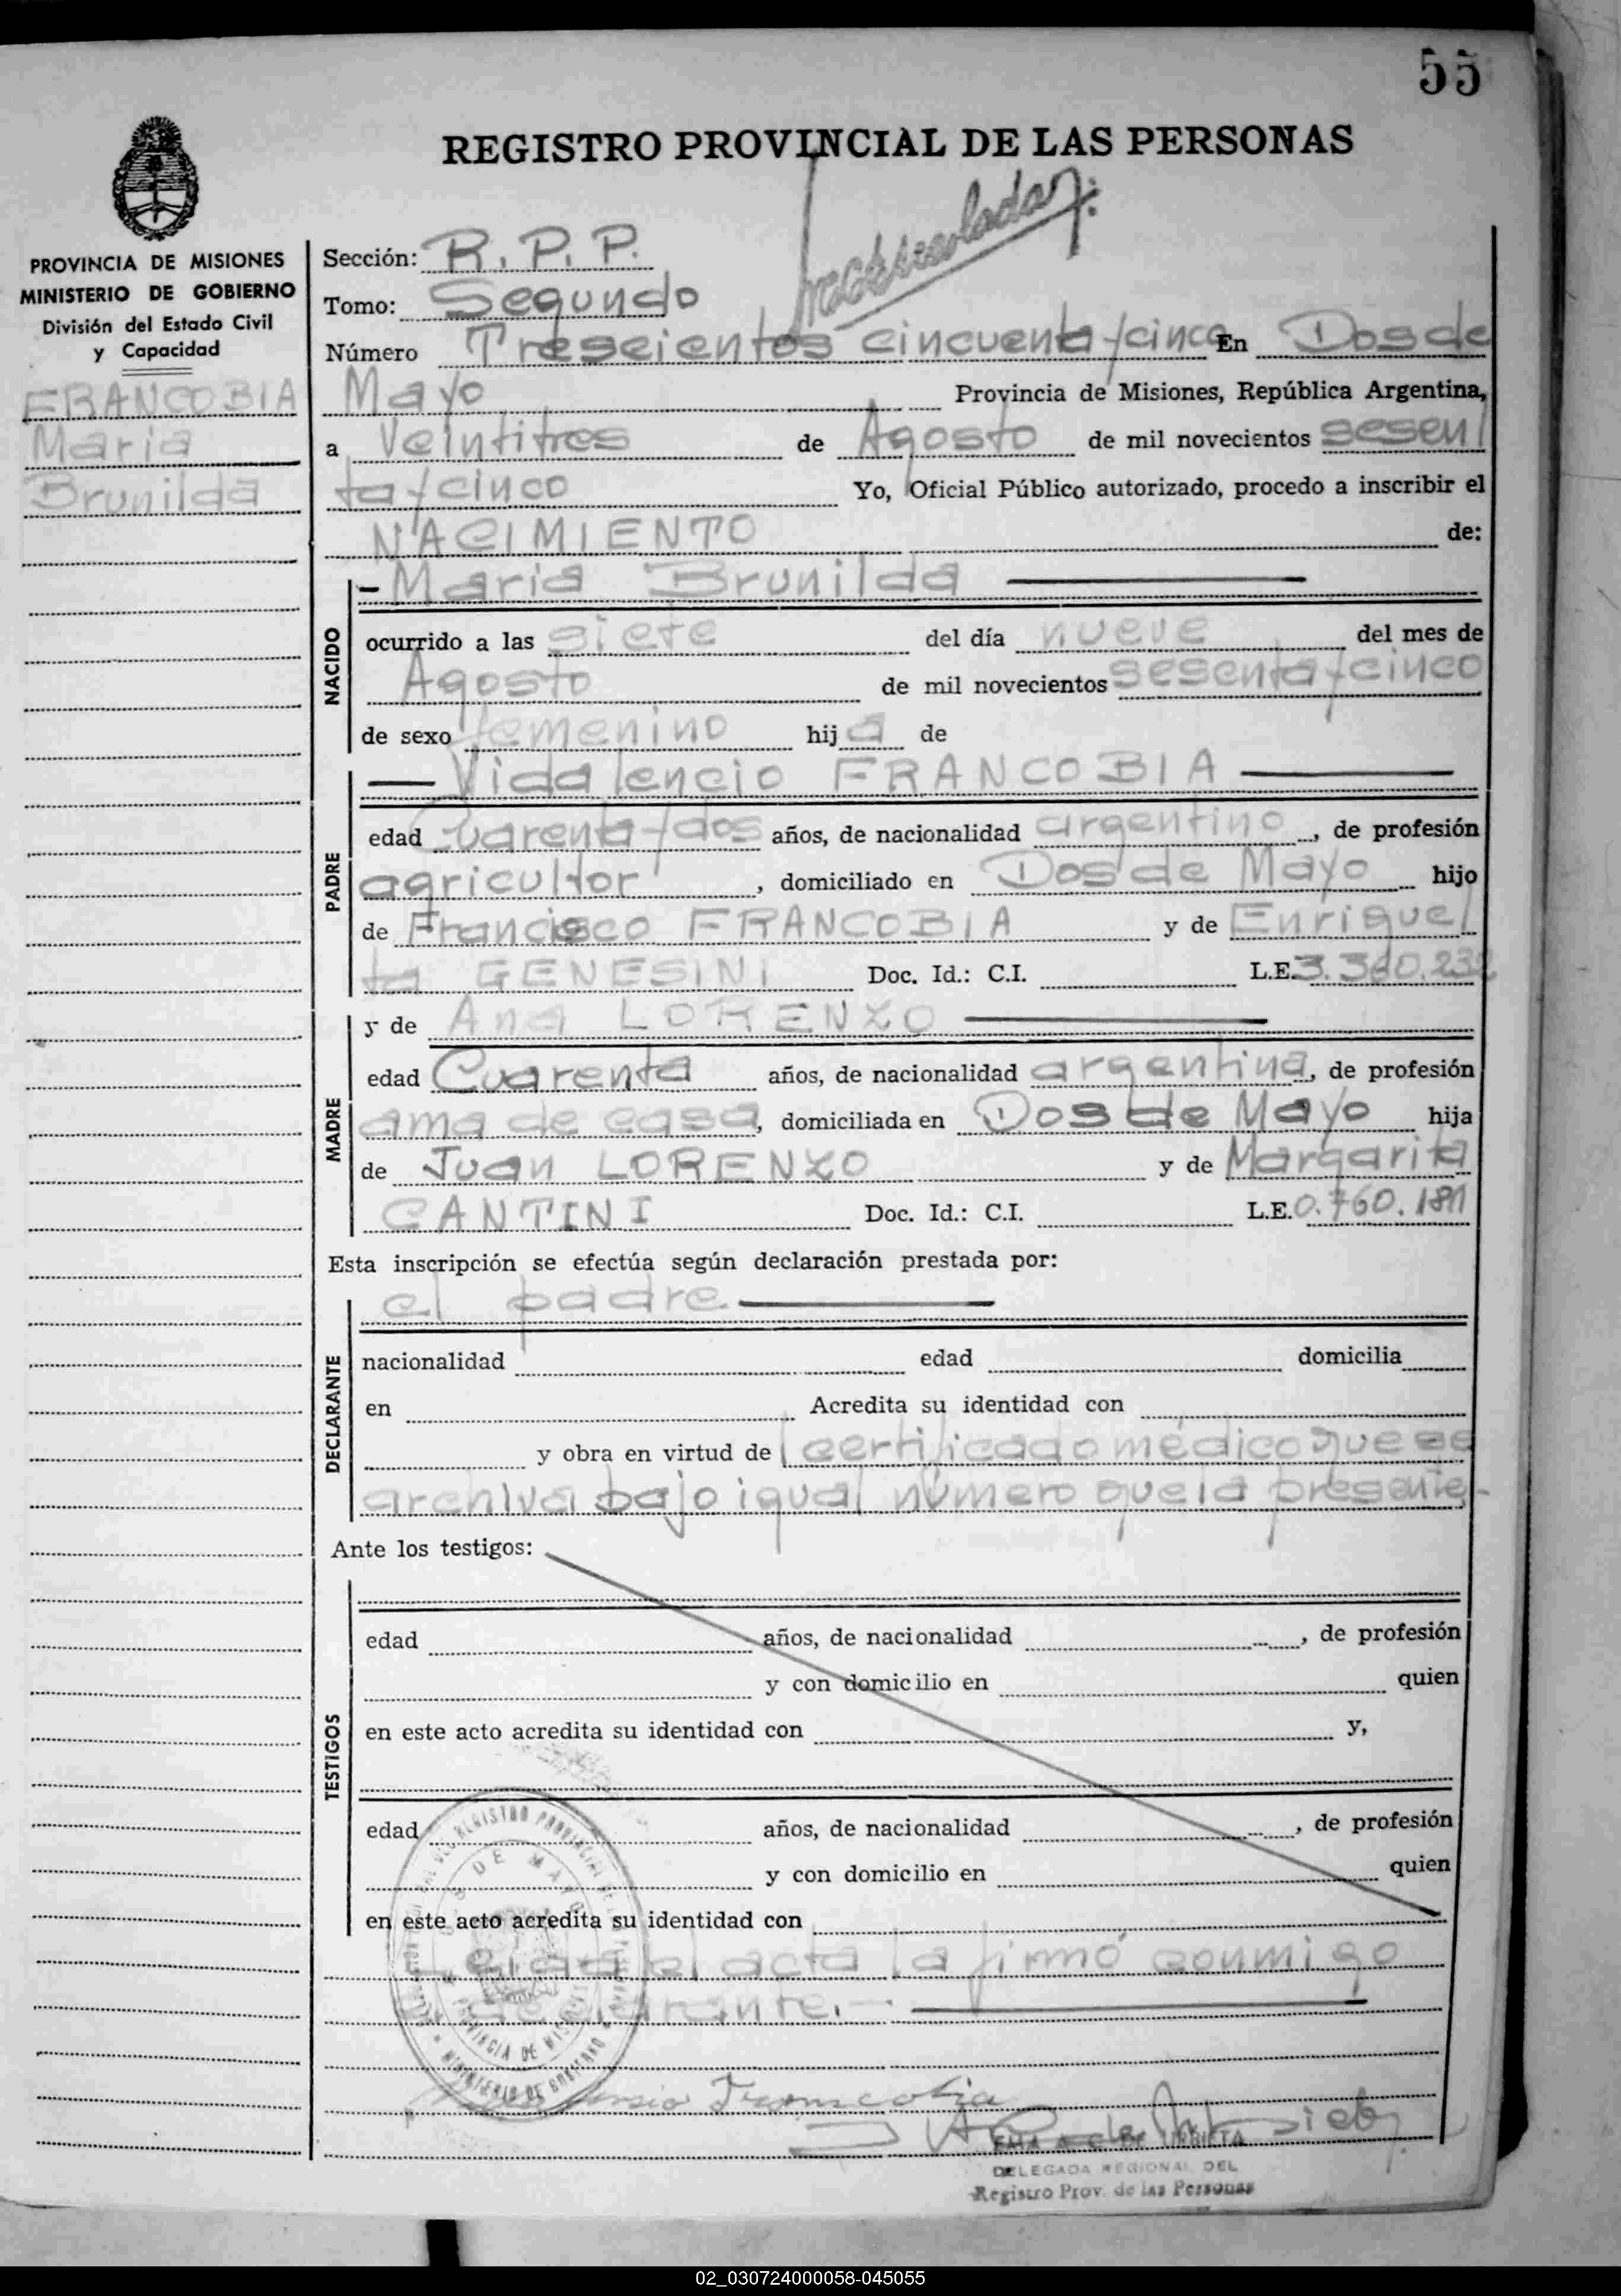 55
REGISTRO PROVINCIAL DE LAS PERSONAS
PROVINCIA DE MISIONES
MINISTERIO DE GOBIERNO
División del Estado Civil
y Capacidad
FRANCOBIA
Maria
Brunilda
Sección: R.P.P.
Tomo: Segundo
Número Trescientos cincuenta/cinco En Dos de
Mayo Provincia de Misiones, República Argentina,
a Veintitres de Agosto de mil novecientos sesen
ta/cinco Yo, Oficial Público autorizado, procedo a inscribir el
NACIMIENTO de:
- Maria Brunilda
NACIDO
ocurrido a las siete del día nueve del mes de
Agosto de mil novecientos sesenta/cinco
de sexo femenino hija de
Vidalencio FRANCOBIA
PADRE
edad Cuarenta/dos años, de nacionalidad argentino, de profesión
agricultor, domiciliado en Dos de Mayo hijo
de Francisco FRANCOBIA y de Enrique
ta GENESINI Doc. Id.: C.I. L.E.
y de Ana LORENZO
MADRE
edad Cuarenta años, de nacionalidad argentina, de profesión
ama de casa, domiciliada en Dos de Mayo hija
de Juan LORENZO y de Margarita
CANTINI Doc. Id.: C.I. L.E. 0.760.181
Esta inscripción se efectúa según declaración prestada por:
el padre
DECLARANTE
nacionalidad edad domicilia
en Acredita su identidad con
y obra en virtud de certificado médico que se
archiva bajo igual número que la presente.-
Ante los testigos:
TESTIGOS
edad años, de nacionalidad , de profesión
y con domicilio en quien
en este acto acredita su identidad con y,
edad años, de nacionalidad , de profesión
y con domicilio en quien
en este acto acredita su identidad con
Leida el acta la firmó conmigo
el declarante.-
Francobia
DELEGADA REGIONAL DEL
Registro Prov. de las Personas
02_030724000058-045055